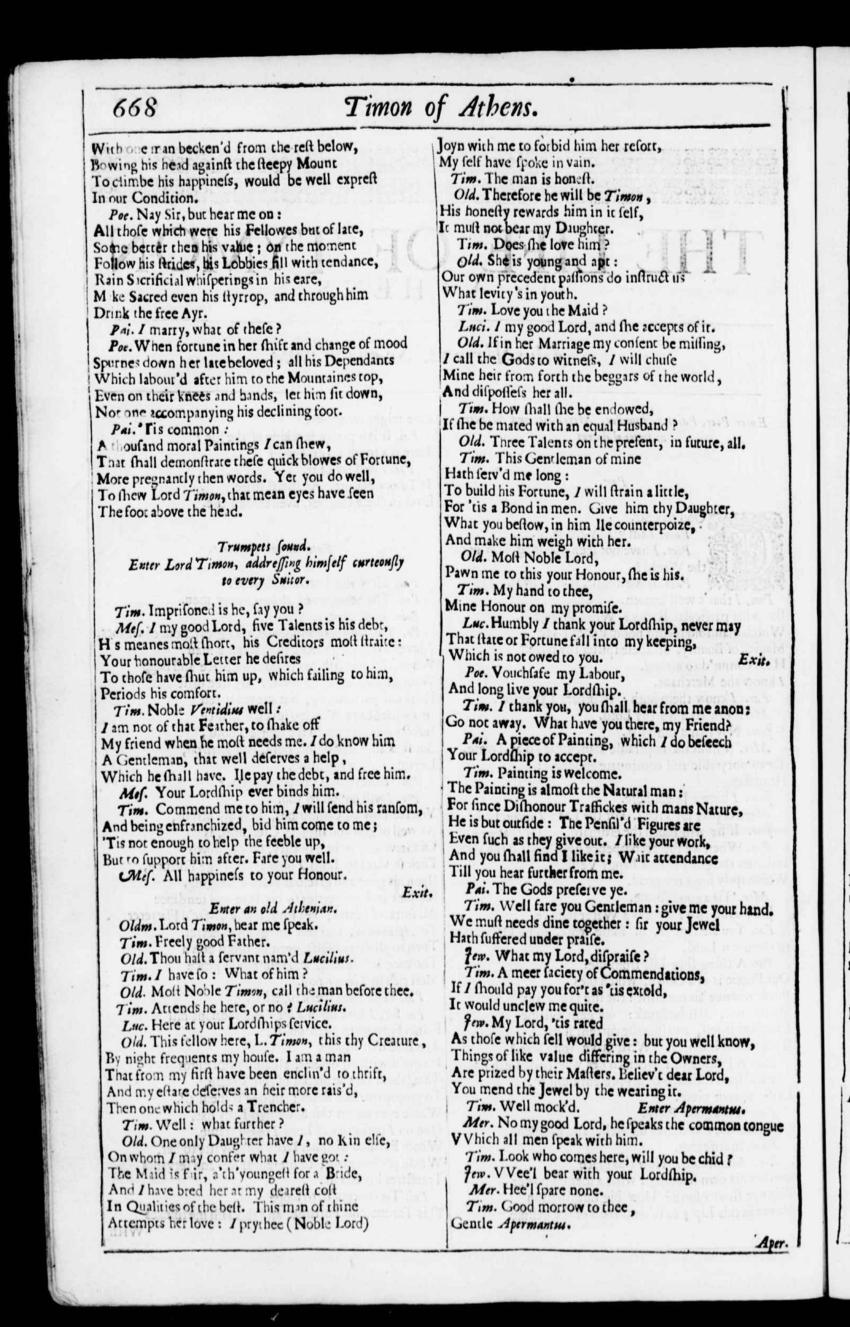 668
Timon of Athens.
With one man becken'd from the rest below,
Bowing his head against the steepy Mount
To climbe his happiness, would be well exprest
In our Condition.
Poe. Nay Sir, but hear me on:
All those which were his Fellowes but of late,
Some better then his value; on the moment
Follow his strides, his Lobbies fill with tendance,
Rain Sacrificial whisperings in his eare,
Make Sacred even his styrrop, and through him
Drink the free Ayr.
Pai. I marry, what of these?
Poe. When fortune in her shift and change of mood
Spurnes down her late beloved; all his Dependants
Which labour'd after him to the Mountaines top,
Even on their knees and hands, let him sit down,
Not one accompanying his declining foot.
Pai. 'Tis common:
A thousand moral Paintings I can shew,
That shall demonstrate these quick blowes of Fortune,
More pregnantly then words. Yet you do well,
To shew Lord Timon, that mean eyes have seen
The foot above the head.
Trumpets sound.
Enter Lord Timon, addressing himself curteously
to every Suitor.
Tim. Imprisoned is he, say you?
Mes. I my good Lord, five Talents is his debt,
H s meanes most short, his Creditors most straite:
Your honourable Letter he desires
To those have shut him up, which failing to him,
Periods his comfort.
Tim. Noble Ventidius well:
I am not of that Feather, to shake off
My friend when he most needs me. I do know him
A Gentleman, that well deserves a help,
Which he shall have. Ile pay the debt, and free him.
Mes. Your Lordship ever binds him.
Tim. Commend me to him, I will send his ransom,
And being enfranchized, bid him come to me;
'Tis not enough to help the feeble up,
But to support him after. Fare you well.
Mes. All happiness to your Honour.
Exit.
Enter an old Athenian.
Oldm. Lord Timon, hear me speak.
Tim. Freely good Father.
Old. Thou hast a servant nam'd Lucilius.
Tim. I have so: What of him?
Old. Most Noble Timon, call the man before thee.
Tim. Attends he here, or no? Lucilius.
Luc. Here at your Lordships service.
Old. This fellow here, L. Timon, this thy Creature,
By night frequents my house. I am a man
That from my first have been enclin'd to thrift,
And my estate deserves an heir more rais'd,
Then one which holds a Trencher.
Tim. Well: what further?
Old. One only Daughter have I, no Kin else,
On whom I may confer what I have got:
The Maid is fair, a'th'youngest for a Bride,
And I have bred her at my dearest cost
In Qualities of the best. This man of thine
Attempts her love: I prythee (Noble Lord)
Joyn with me to forbid him her resort,
My self have spoke in vain.
Tim. The man is honest.
Old. Therefore he will be Timon,
His honesty rewards him in it self,
It must not bear my Daughter.
Tim. Does she love him?
Old. She is young and apt:
Our own precedent passions do instruct us
What levity's in youth.
Tim. Love you the Maid?
Luci. I my good Lord, and she accepts of it.
Old. If in her Marriage my consent be missing,
I call the Gods to witness, I will chuse
Mine heir from forth the beggars of the world,
And dispossess her all.
Tim. How shall she be endowed,
If she be mated with an equal Husband?
Old. Three Talents on the present, in future, all.
Tim. This Gentleman of mine
Hath serv'd me long:
To build his Fortune, I will strain a little,
For 'tis a Bond in men. Give him thy Daughter,
What you bestow, in him Ile counterpoize,
And make him weigh with her.
Old. Most Noble Lord,
Pawn me to this your Honour, she is his.
Tim. My hand to thee,
Mine Honour on my promise.
Luc. Humbly I thank your Lordship, never may
That state or Fortune fall into my keeping,
Which is not owed to you. Exit.
Poe. Vouchsafe my Labour,
And long live your Lordship.
Tim. I thank you, you shall hear from me anon:
Go not away. What have you there, my Friend?
Pai. A piece of Painting, which I do beseech
Your Lordship to accept.
Tim. Painting is welcome.
The Painting is almost the Natural man:
For since Dishonour Traffickes with mans Nature,
He is but outside: The Pensil'd Figures are
Even such as they give out. I like your work,
And you shall find I like it; Wait attendance
Till you hear further from me.
Pai. The Gods preserve ye.
Tim. Well fare you Gentleman: give me your hand.
We must needs dine together: sir your Jewel
Hath suffered under praise.
Jew. What my Lord, dispraise?
Tim. A meer saciety of Commendations,
If I should pay you for't as 'tis extold,
It would unclew me quite.
Jew. My Lord, 'tis rated
As those which sell would give: but you well know,
Things of like value differing in the Owners,
Are prized by their Masters. Believ't dear Lord,
You mend the Jewel by the wearing it.
Tim. Well mock'd. Enter Apermantus.
Mer. No my good Lord, he speaks the common tongue
VVhich all men speak with him.
Tim. Look who comes here, will you be chid?
Jew. VVee'l bear with your Lordship.
Mer. Hee'l spare none.
Tim. Good morrow to thee,
Gentle Apermantus.
Aper.